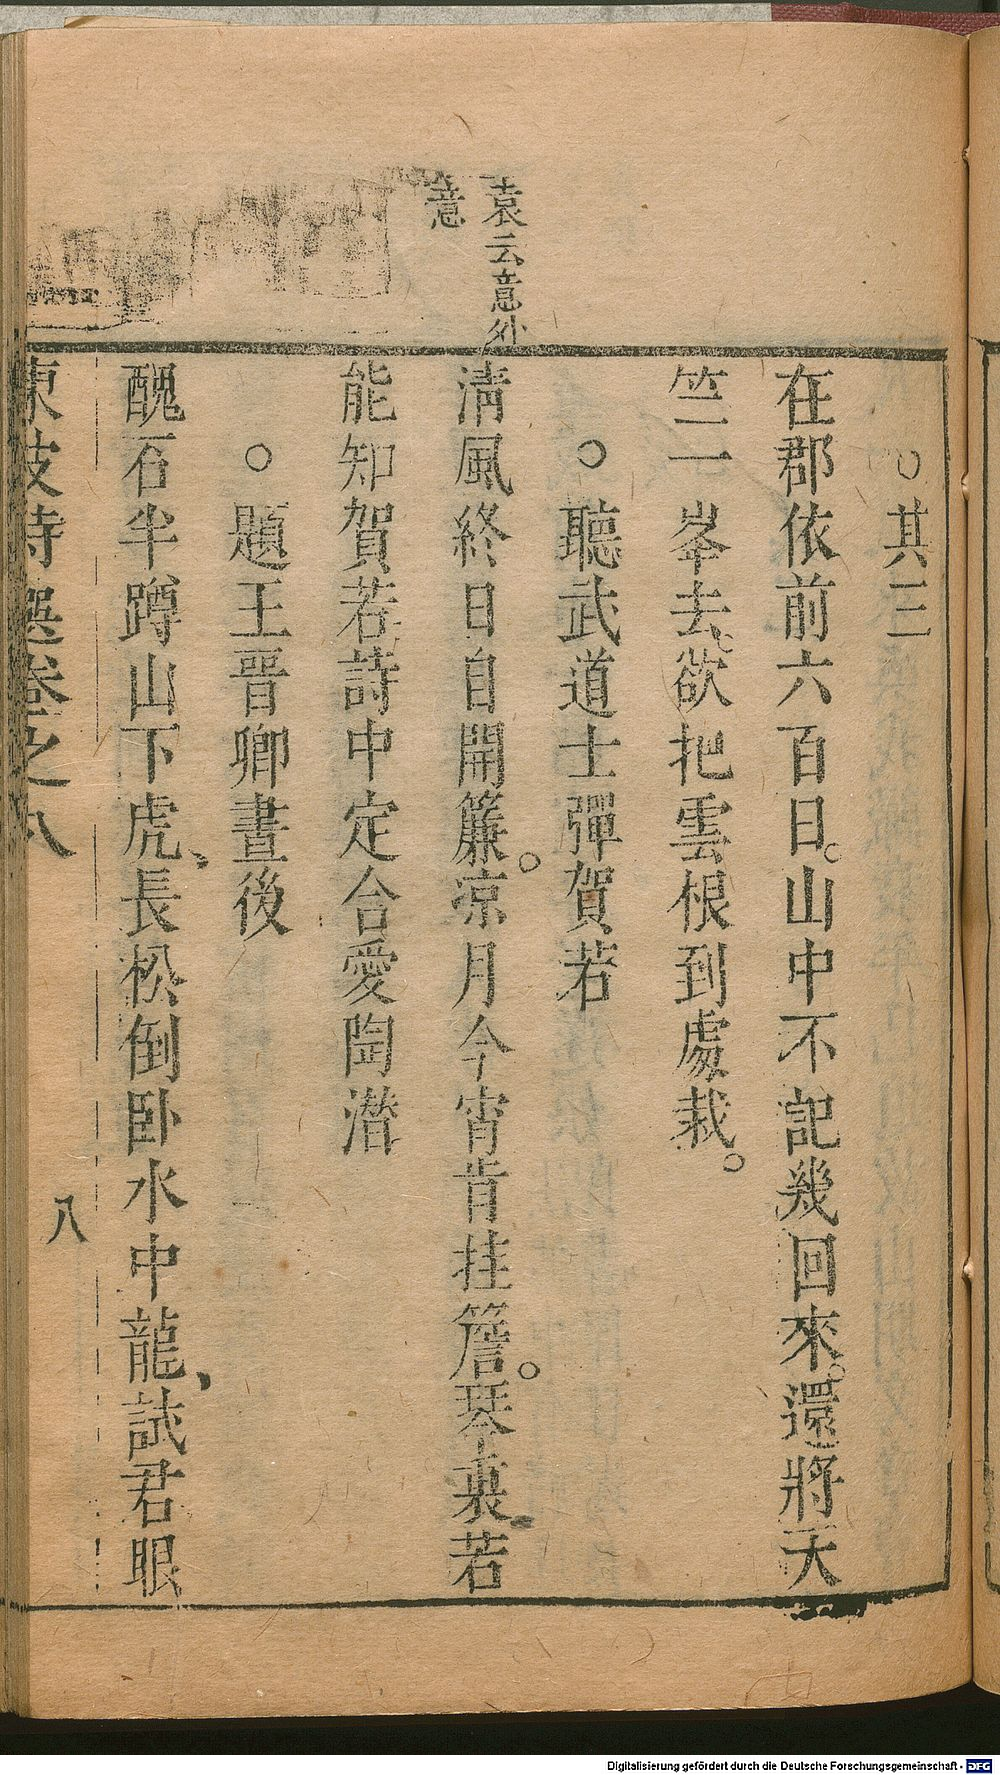 袁云意外
意
○其三
在郡依前六百日。山中不記幾回來。還將天
竺二峯去、欲把雲根到處栽。
○聽武道士彈賀若
清風終日自開簾。凉月今宵肯挂簷。琴裏若
能知賀若詩中定合愛陶潜
○題王晉卿畫後
醜石半蹲山下虎、長松倒卧水中龍、試君眼
東坡詩選卷之八
八
Digitalisierung gefördert durch die Deutsche Forschungsgemeinschaft - DFG